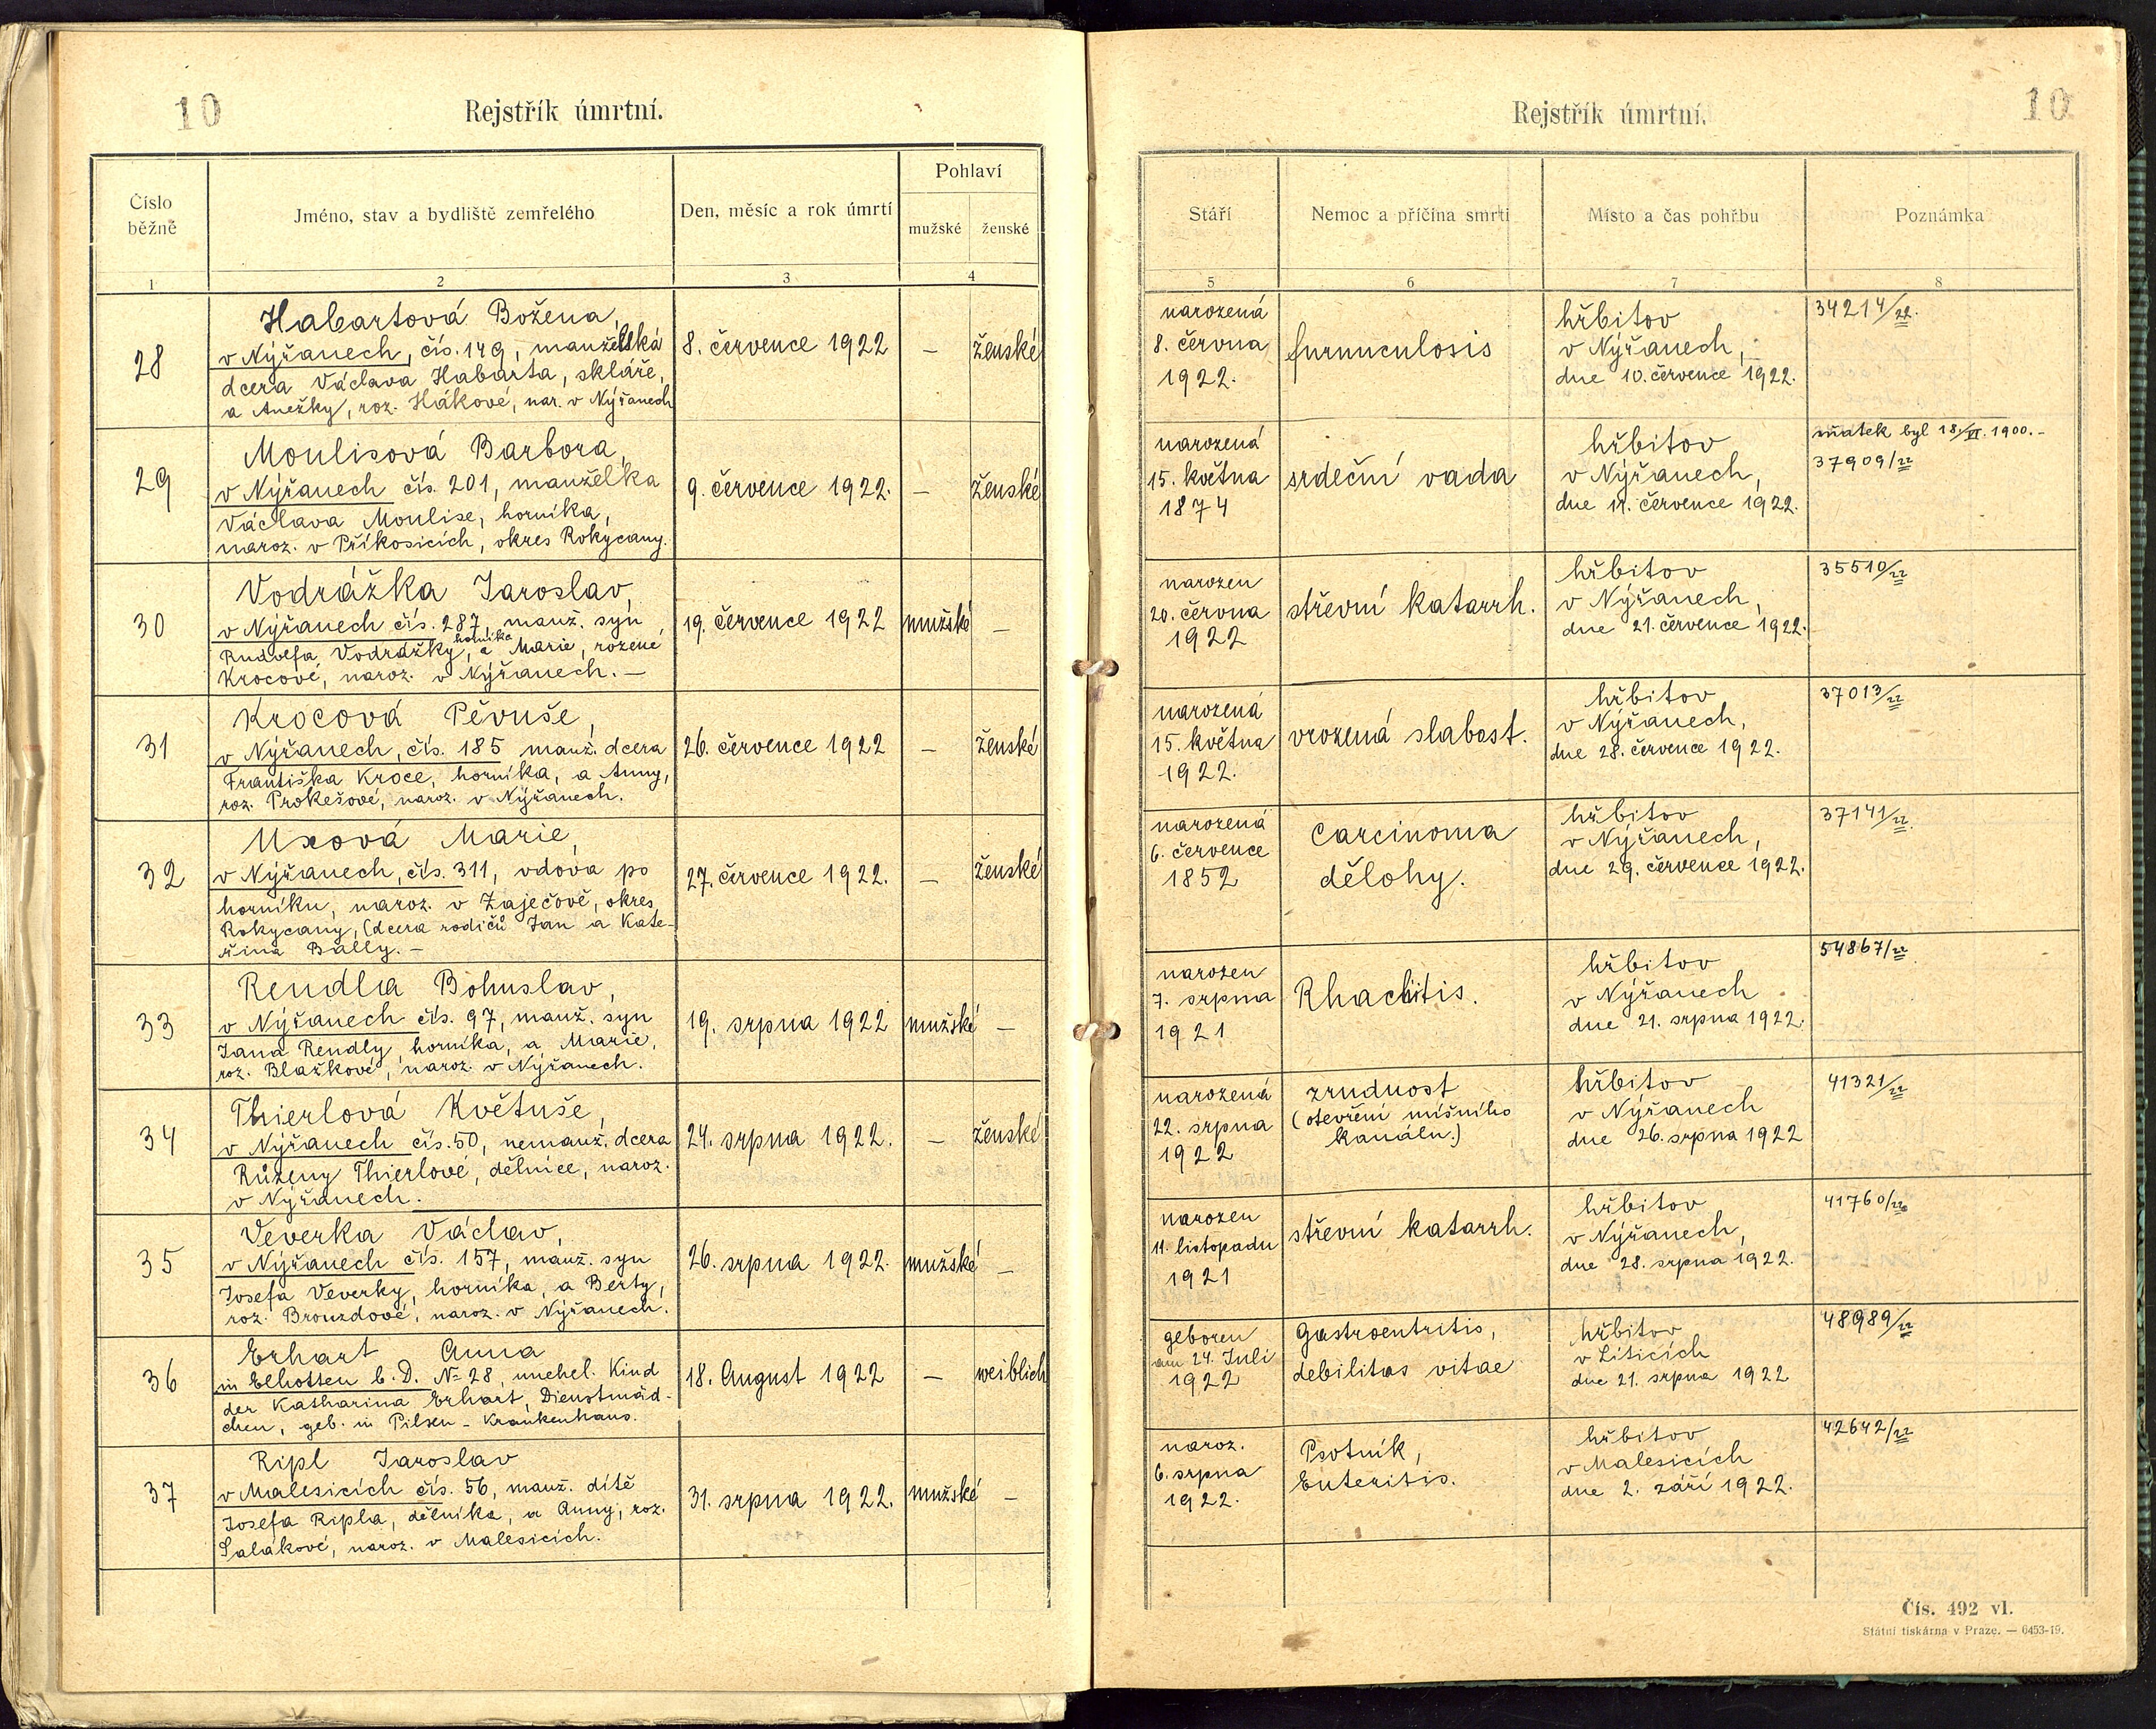 10
Rejstřík úmrtní.
Číslo
běžné
Jméno, stav a bydliště zemřelého
Den, měsíc a rok úmrtí
Pohlaví
mužské
ženské
1
2
3
4
28
Habartová Božena,
v Nýřanech, čís. 149, manželská
dcera Václava Habarta, skláře,
a Anežky, roz. Hákové, nar. v Nýřanech
8. července 1922
—
ženské
29
Moulisová Barbora,
v Nýřanech čís. 201, manželka
Václava Moulise, horníka,
naroz. v Příkosicích, okres Rokycany.
9. července 1922.
—
ženské
30
Vodrážka Jaroslav,
v Nýřanech čís. 287, manž. syn
horníka
Rudolfa Vodrážky, a Marie, rozené
Krocové, naroz. v Nýřanech. —
19. července 1922
mužské
—
31
Krocová Pěvuše,
v Nýřanech, čís. 185 manž. dcera
Františka Kroce, horníka, a Anny,
roz. Prokešové, naroz. v Nýřanech.
26. července 1922
—
ženské
32
Uxová Marie,
v Nýřanech, čís. 311, vdova po
horníku, naroz. v Zaječově, okres
Rokycany, (dcera rodičů Jan a Kate-
řina Bally. —
27. července 1922.
—
ženské
33
Rendla Bohuslav,
v Nýřanech čís. 97, manž. syn
Jana Rendly, horníka, a Marie,
roz. Blažkové, naroz. v Nýřanech.
19. srpna 1922
mužské
—
34
Thierlová Květuše,
v Nýřanech čís. 50, nemanž. dcera
Růženy Thierlové, dělnice, naroz.
v Nýřanech.
24. srpna 1922.
—
ženské
35
Veverka Václav,
v Nýřanech čís. 157, manž. syn
Josefa Veverky, horníka, a Berty,
roz. Brouzdové, naroz. v Nýřanech.
26. srpna 1922.
mužské
—
36
Erhart Anna
in Elhotten b. D. № 28, unehel. Kind
der Katharina Erhart, Dienstmäd-
chen, geb. in Pilsen - Krankenhaus.
18. August 1922
—
weiblich
37
Ripl Jaroslav
v Malesicích čís. 56, manž. dítě
Josefa Ripla, dělníka, a Anny, roz.
Salákové, naroz. v Malesicích.
31. srpna 1922.
mužské
—
Rejstřík úmrtní.
10
Stáří
Nemoc a příčina smrti
Místo a čas pohřbu
Poznámka
5
6
7
8
narozená
8. června
1922.
furunculosis
hřbitov
v Nýřanech,
dne 10. července 1922.
34214/22.
narozená
15. května
1874
srdeční vada
hřbitov
v Nýřanech,
dne 11. července 1922.
sňatek byl 18./VI. 1900. -
37909/22
narozen
20. června
1922
střevní katarrh.
hřbitov
v Nýřanech,
dne 21. července 1922.
35510/22
narozená
15. května
1922.
vrozená slabost.
hřbitov
v Nýřanech,
dne 28. července 1922.
37013/22
narozená
6. července
1852
Carcinoma
dělohy.
hřbitov
v Nýřanech,
dne 29. července 1922.
37141/22.
narozen
7. srpna
1921
Rhachitis.
hřbitov
v Nýřanech
dne 21. srpna 1922.
54867/22
narozená
22. srpna
1922
zrudnost
(otevření míšního
kanálu.)
hřbitov
v Nýřanech
dne 26. srpna 1922
41321/22
narozen
11. listopadu
1921
střevní katarrh.
hřbitov
v Nýřanech,
dne 28. srpna 1922.
41760/22
geboren
am 24. Juli
1922
Gastroentritis,
debilitas vitae
hřbitov
v Liticích
dne 21. srpna 1922
48989/22
naroz.
6. srpna
1922.
Psotník,
Enteritis.
hřbitov
v Malesicích
dne 2. září 1922.
42642/22
Čís. 492 vl.
Státní tiskárna v Praze. — 6453-19.